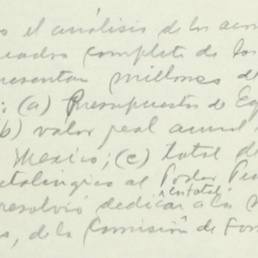 o el análisis de los acon
uadro completo de los
presentan millones de
: (a) Presupuestos de Eg
b) valor real anual
Mexico; (c) total de
etalúrgico al Poder
en total
resolvió dedicar a la
s, de la Comisión de Fom